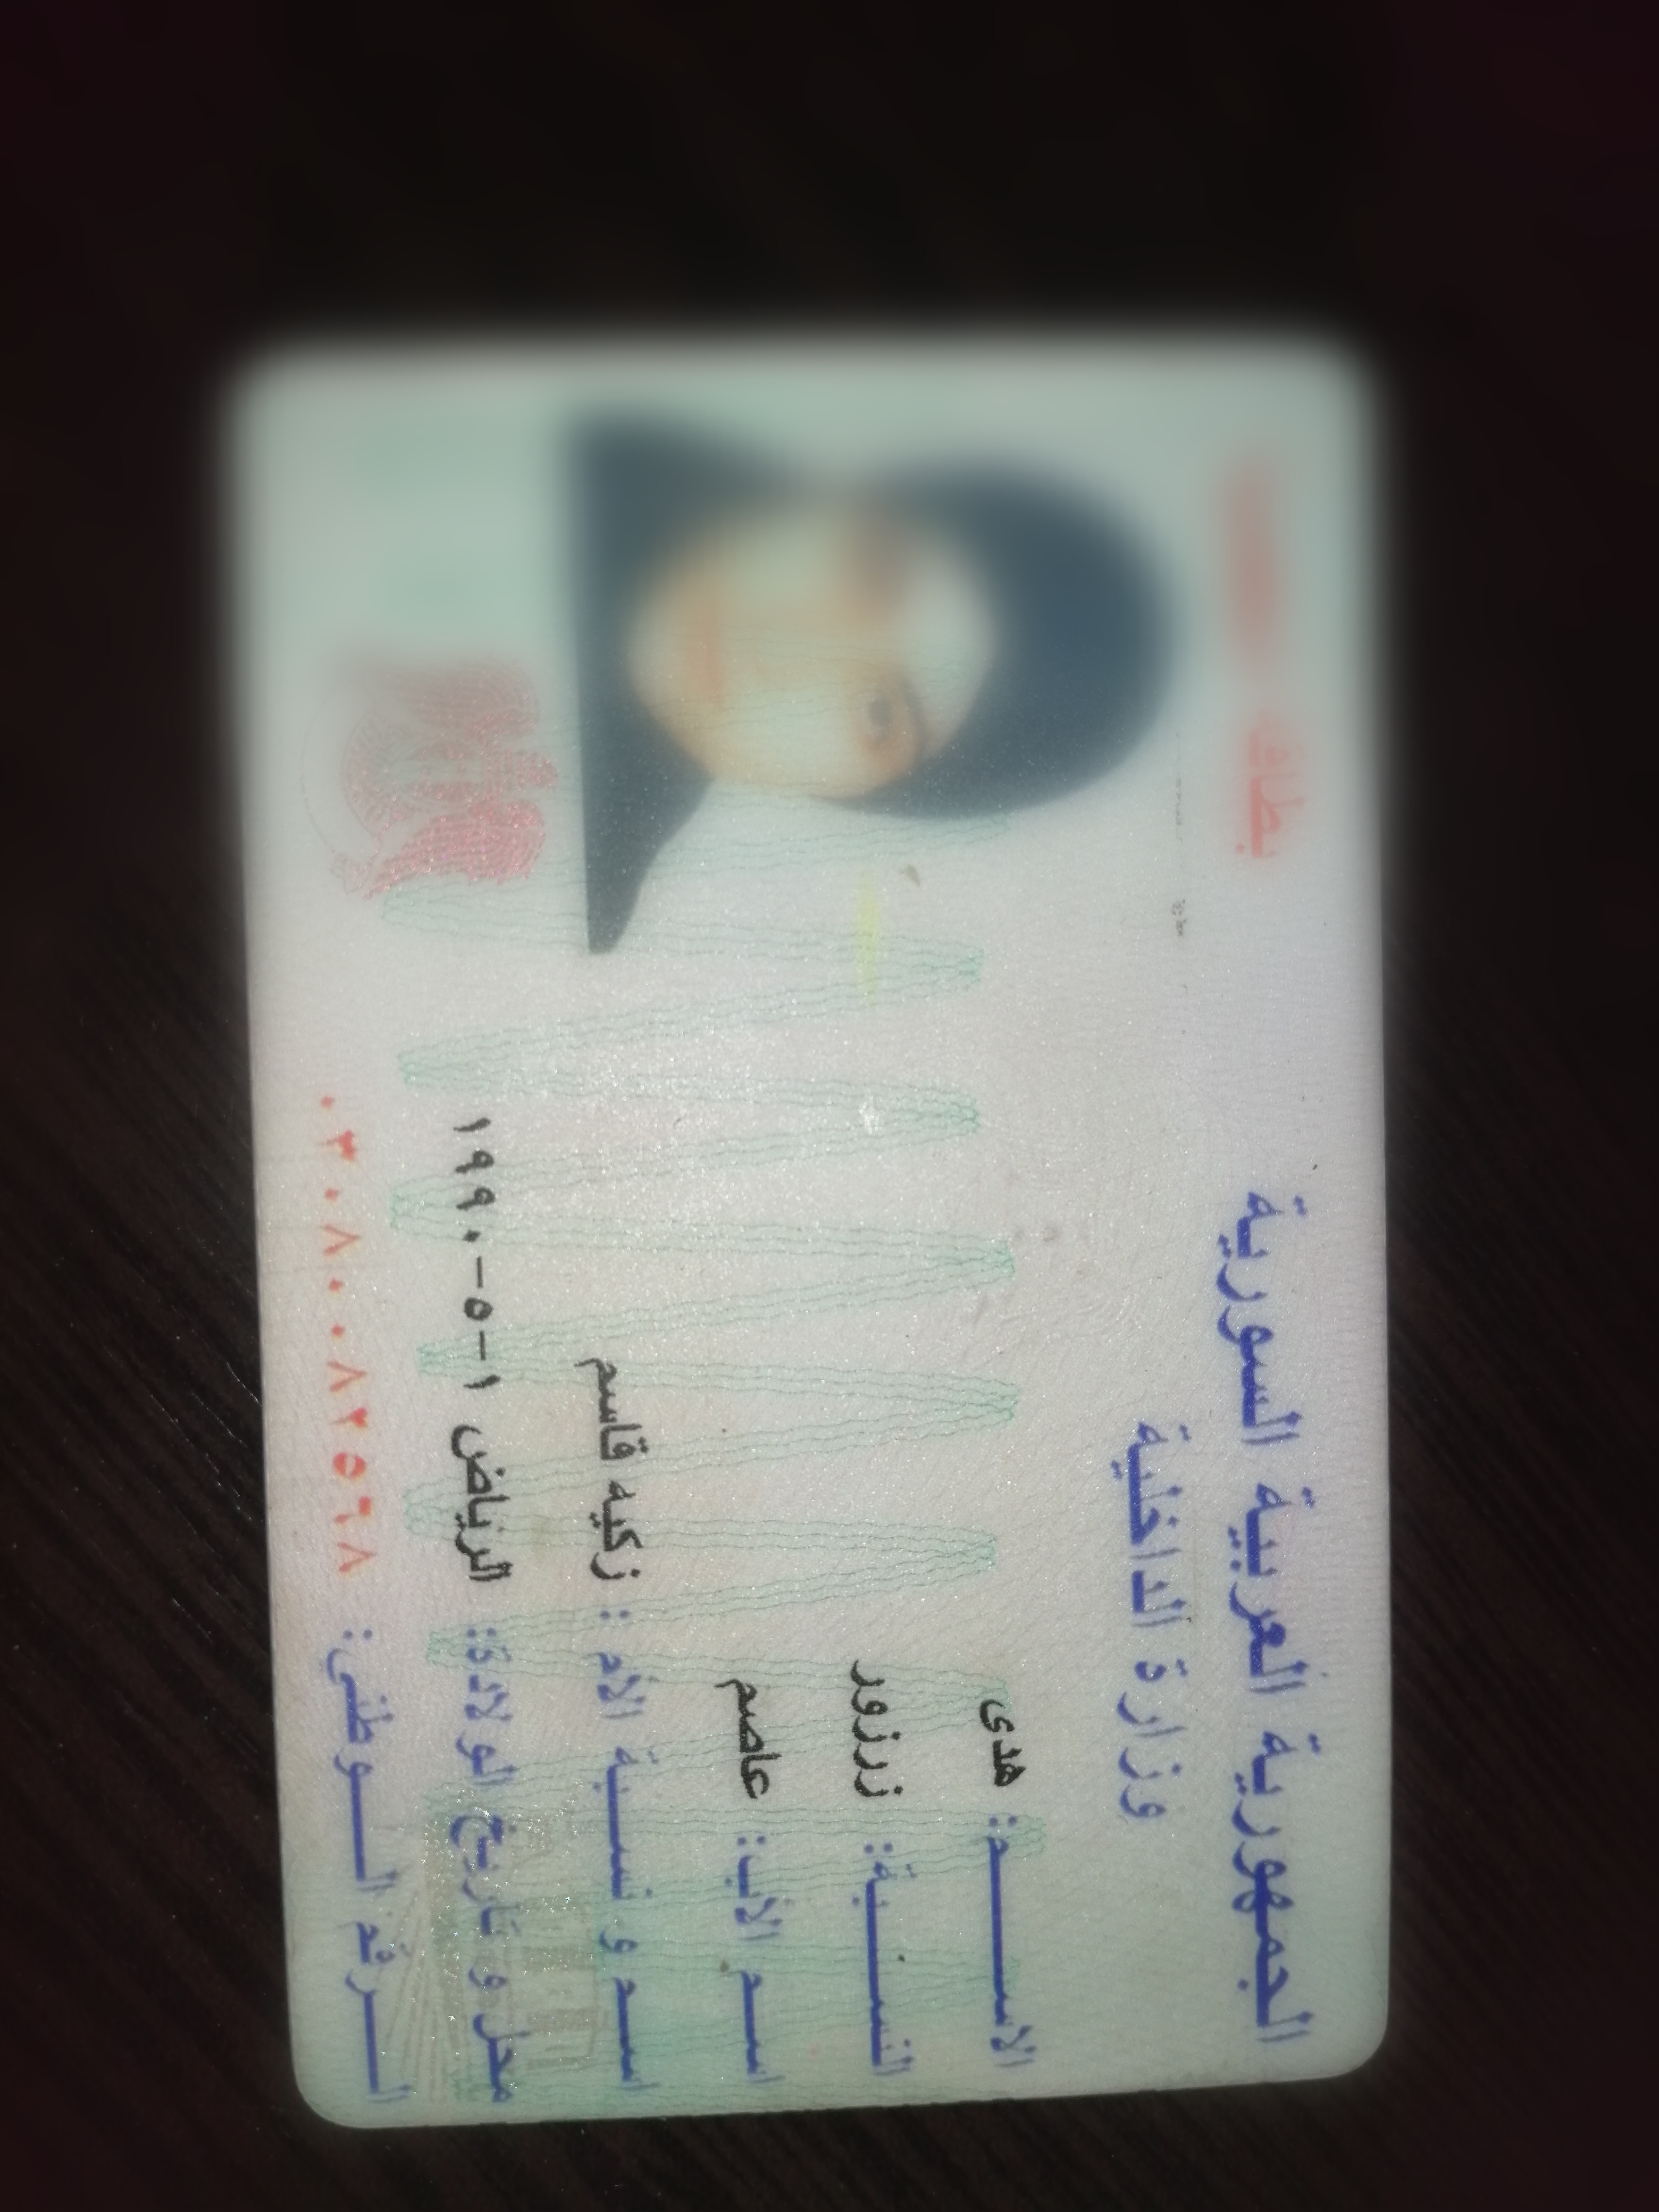 الجمهورية العربية السورية
وزارة الداخلية
بطاقة
الاسم: هدى
النسبة: زرزور
اسم الأب: عاصم
اسم و نسبة الأم: زكيه قاسم
محل و تاريخ الولادة: الرياض ١-٥-١٩٩٠
الرقم الوطني: ٠٣٠٨٠٠٨٢٥٦٨